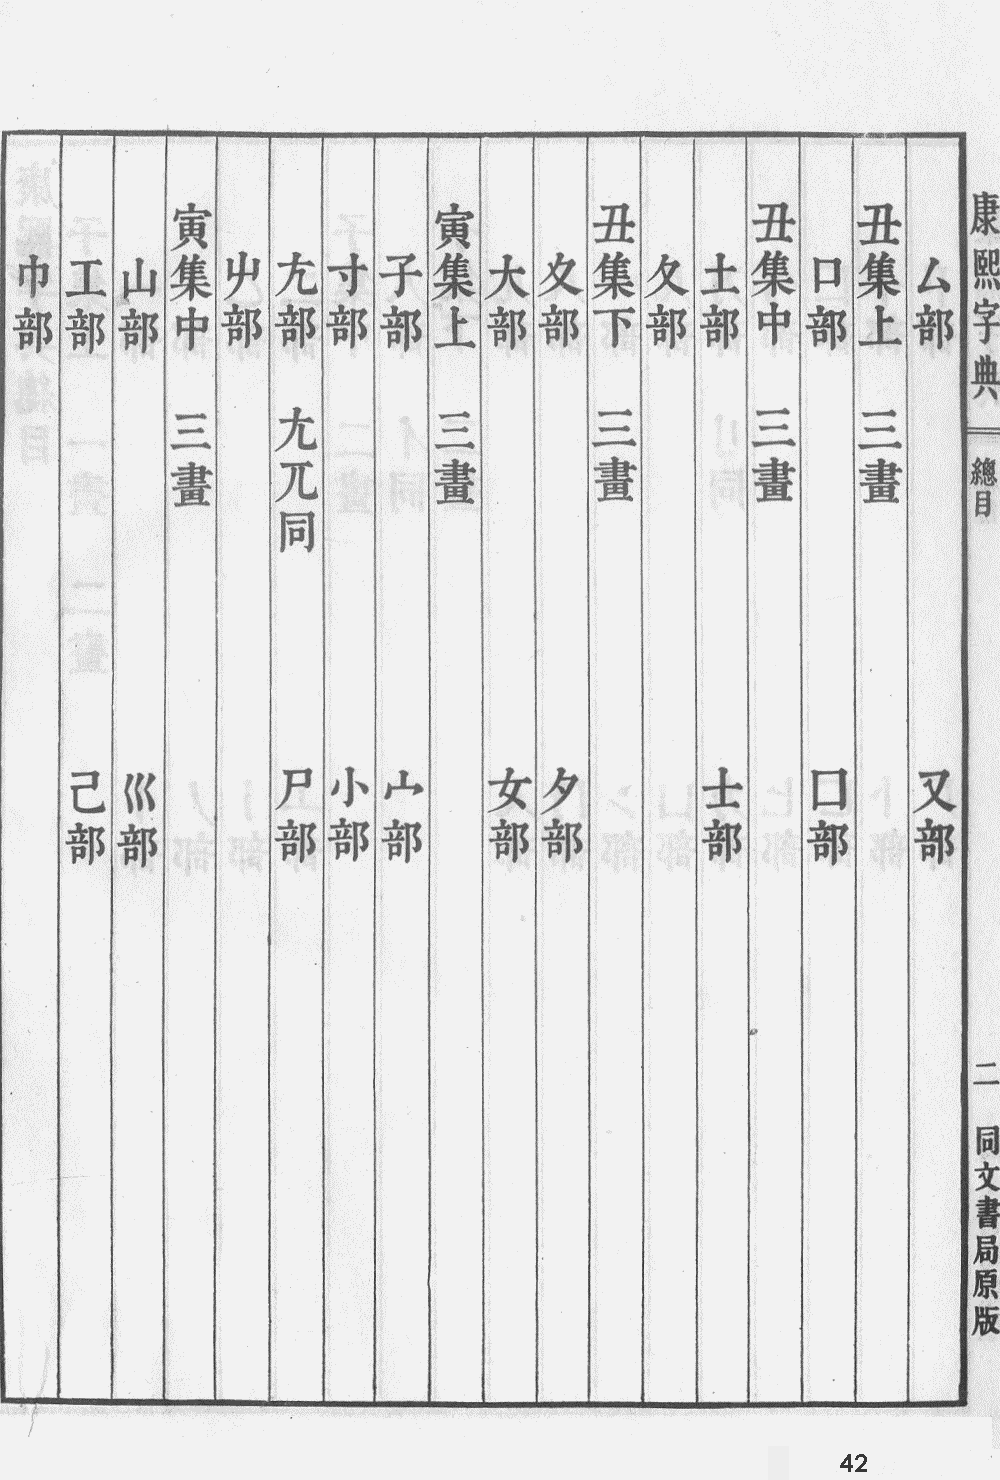 康熙字典 總目 二 同文書局原版
厶部 又部
丑集上 三畫
口部 囗部
丑集中 三畫
土部 士部
夂部
丑集下 三畫
夊部 夕部
大部 女部
寅集上 三畫
子部 宀部
寸部 小部
尢部 尣兀同 尸部
屮部
寅集中 三畫
山部 巛部
工部 己部
巾部
42